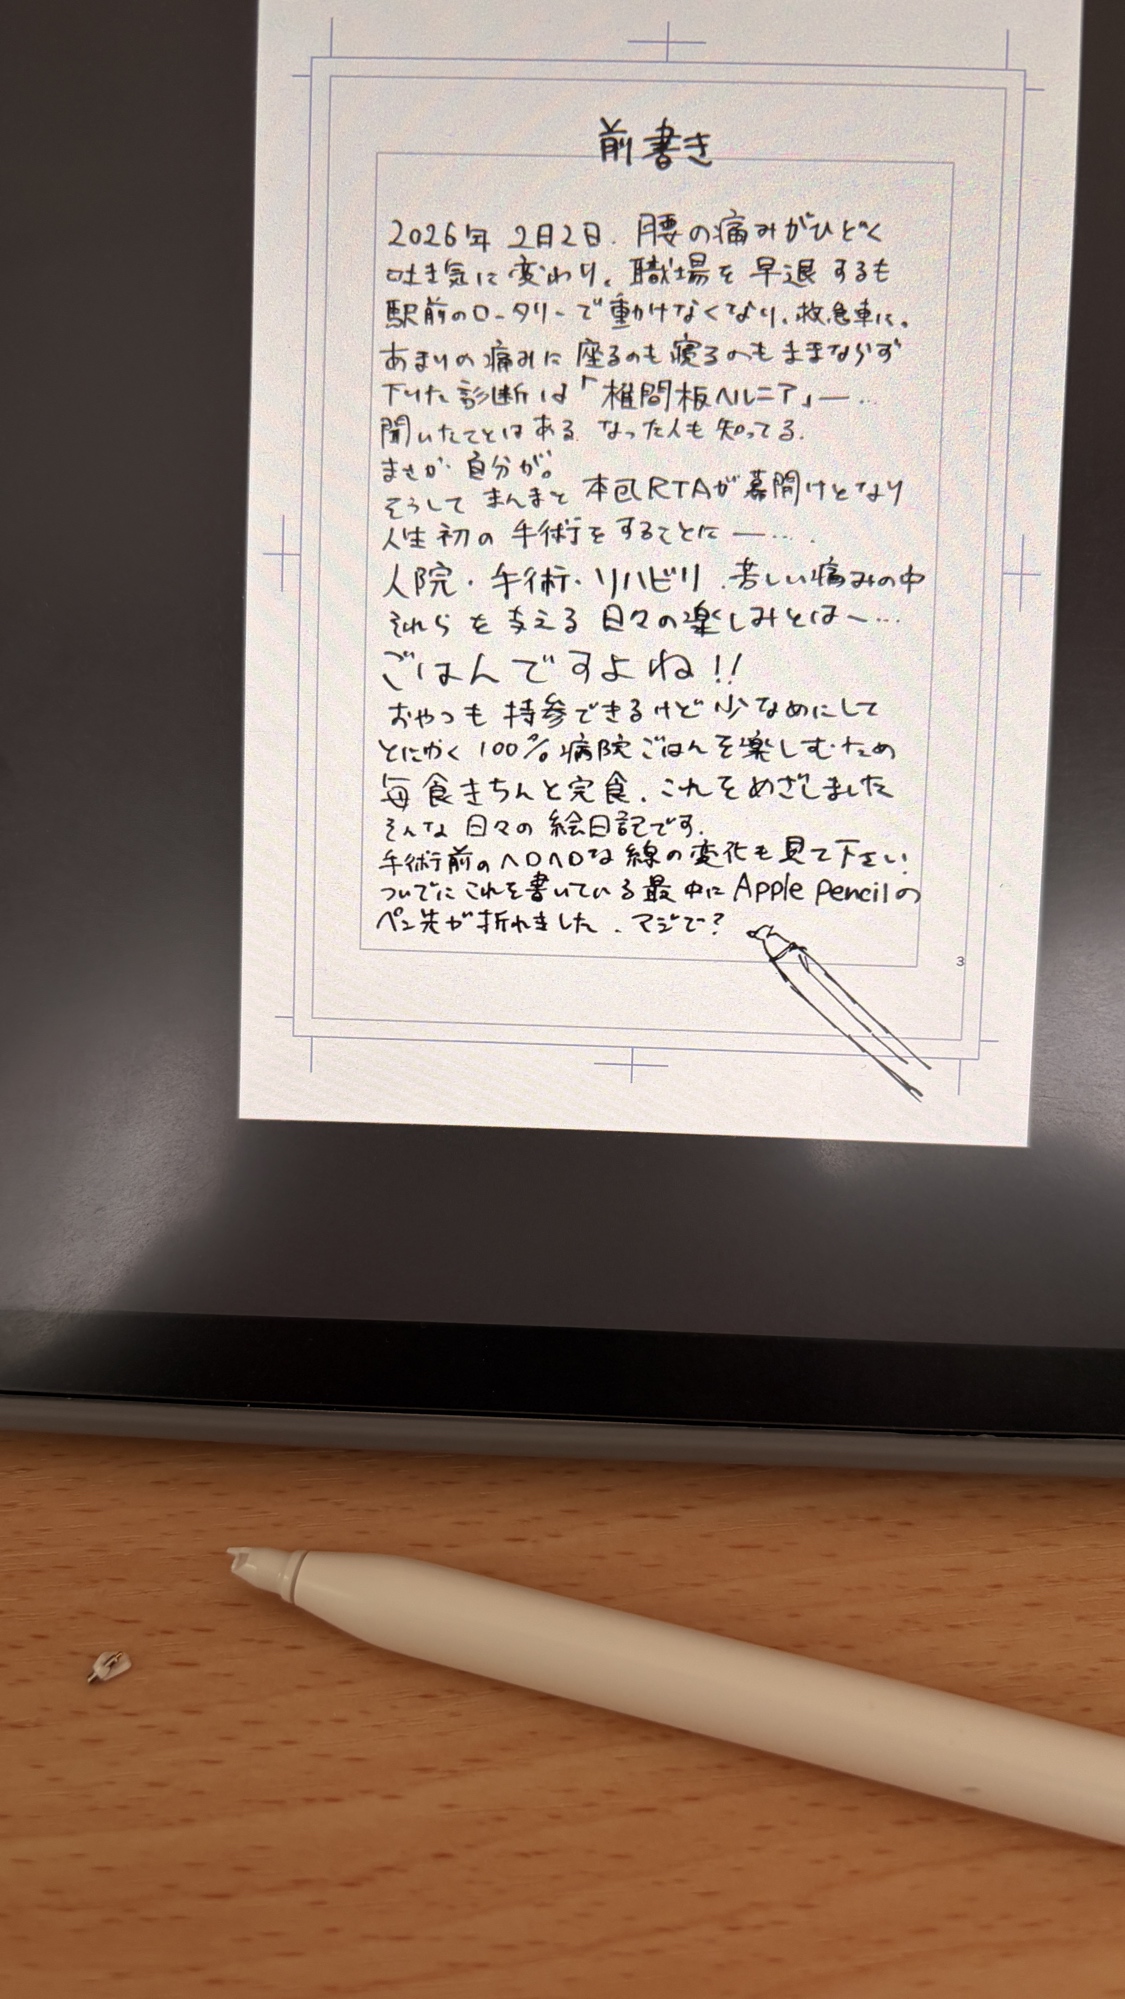 前書き
2026年 2月2日. 腰の痛みがひどく
吐き気に変わり、職場を早退するも
駅前のロータリーで動けなくなり、救急車に。
あまりの痛みに座るのも寝るのもままならず
下りた診断は「椎間板ヘルニア」―…
聞いたことはある なった人も知ってる.
まさか自分が。
そうして まんまと 本包RTAが幕開けとなり
人生初の手術をすることに ―….
入院・手術・リハビリ.苦しい痛みの中
それらを支える日々の楽しみとは―…
ごはんですよね!!
おやつも持参できるけど少なめにして
とにかく100%病院ごはんを楽しむため
毎食きちんと完食.これをめざしました
そんな日々の絵日記です.
手術前のヘロヘロな線の変化も見て下さい
ついでにこれを書いている最中にApple Pencilの
ペン先が折れました.マジで?
3